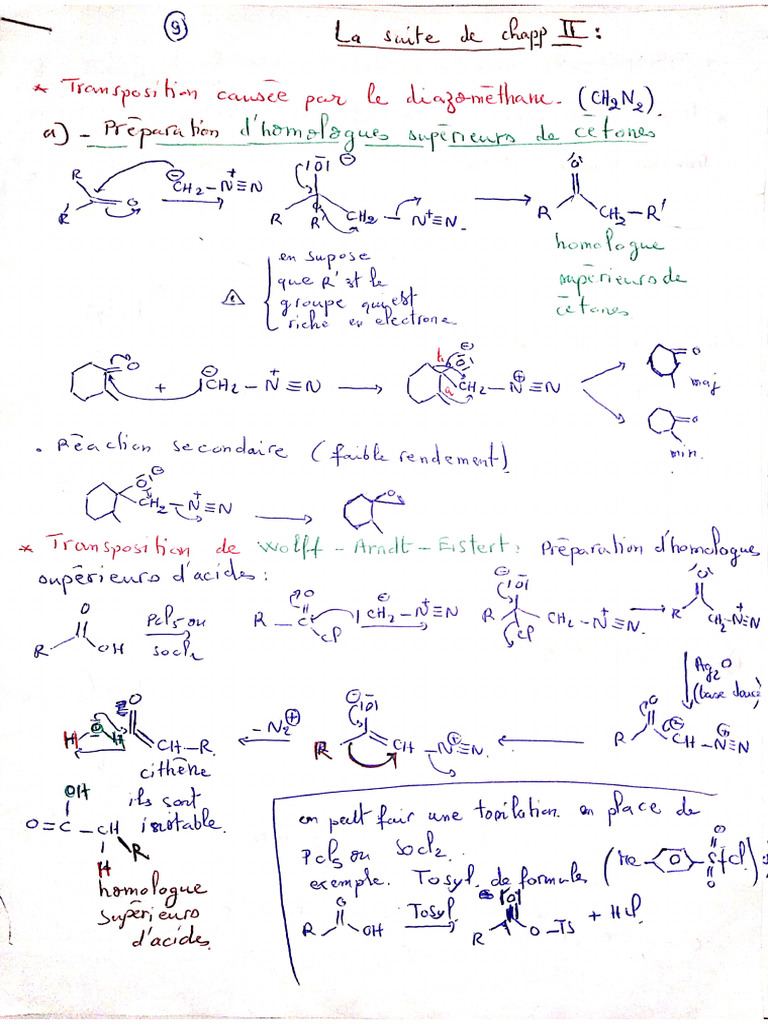 9
La suite de chapp II :
* Transposition causée par le diazométhane. (CH2N2).
a) - Préparation d'homologues supérieurs de cétones
R R' O ⊖CH2-N+≡N |O| ⊖ R R' CH2-N+≡N. O R CH2-R'
homologue
supérieurs de
cétones
en supose
que R' est le
groupe qui est
riche en electrone
O + ⊖CH2-N+≡N b |O| ⊖ a CH2-N⊕≡N O maj
O min.
. Réaction secondaire (faible rendement)
O ⊖ CH2-N+≡N O
* Transposition de Wolff-Arndt-Eistert: Préparation d'homologues
supérieurs d'acides :
R O OH Pcl5 ou socl2 R-C O cl ⊖ICH2-N+≡N ⊖ |O| R cl CH2-N+≡N. R |O| CH2-N+≡N
Ag2O
(base douce)
H O H O CH-R -N2⊕ ⊖|O| R CH-N+≡N. R O CH-N≡N
cithène
ils sont
instable.
OH
O=C-CH R
H
homologue
supérieurs
d'acides.
en peut fair une tosilation en place de
Pcl5 ou Socl2..
exemple. Tosyl. de formule (Me O S cl)
R O OH Tosyl R |O| O-TS + Hcl